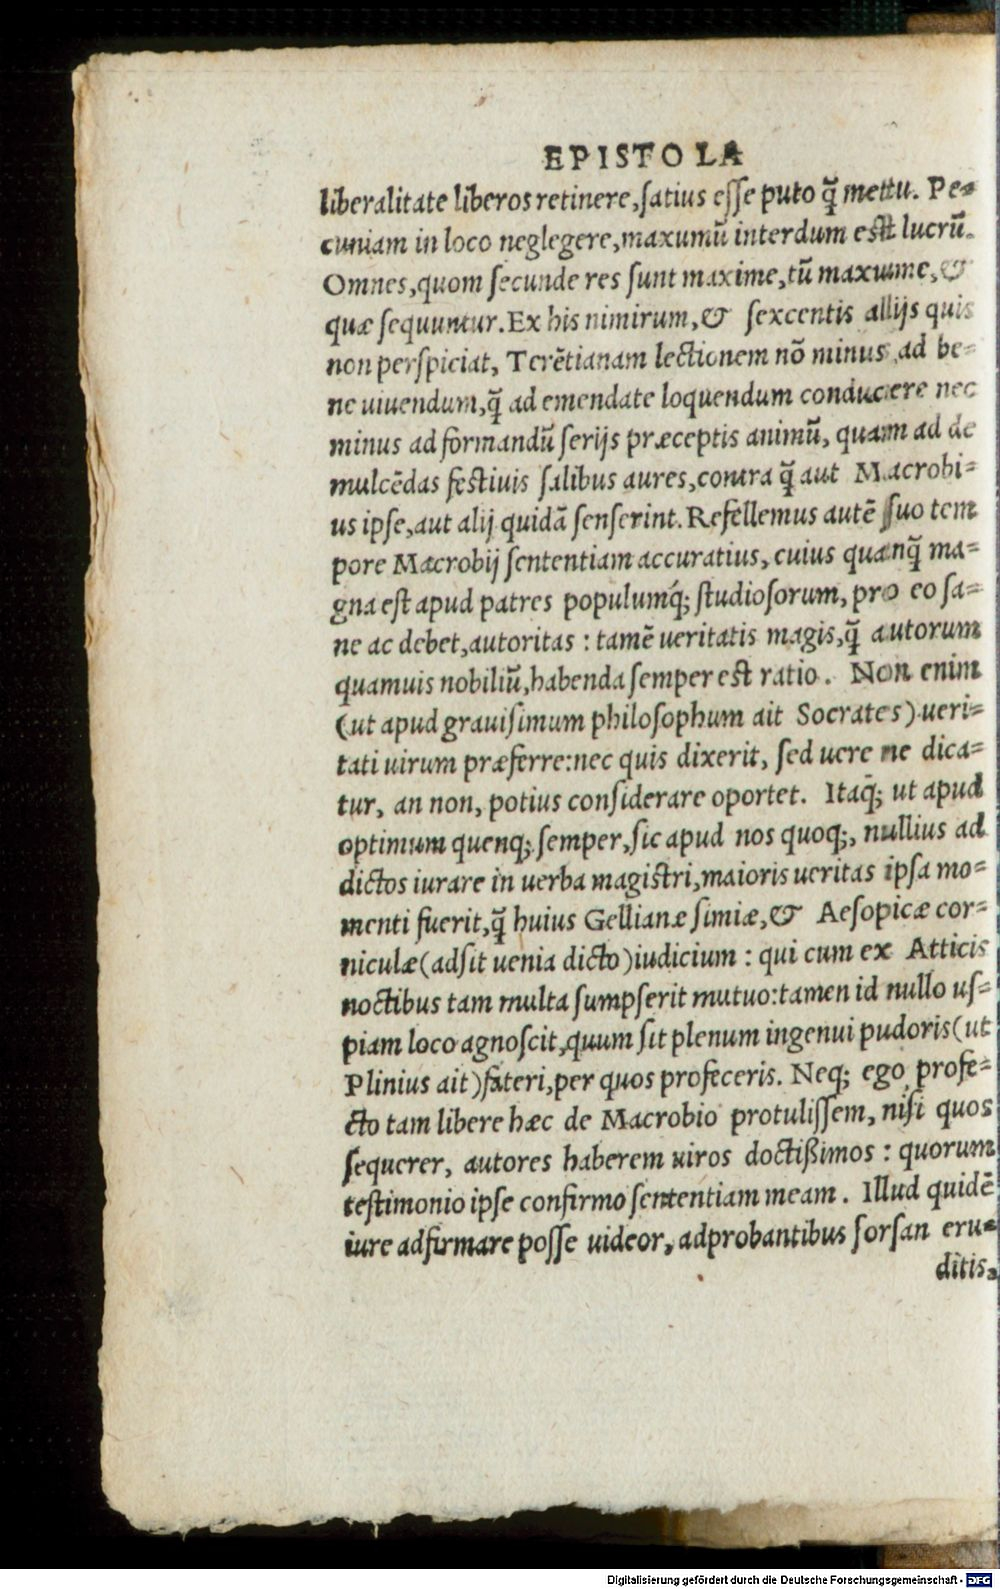 EPISTOLA
liberalitate liberos retinere, satius esse puto q̃ mettu. Pe=
cuniam in loco neglegere, maxumũ interdum est lucrũ.
Omnes, quom secunde res sunt maxime, tũ maxume, &
quæ sequuntur. Ex his nimirum, & sexcentis allijs quis
non perspiciat, Terẽtianam lectionem nõ minus ad be=
ne uiuendum, q̃ ad emendate loquendum conducere nec
minus ad formandũ serijs præceptis animũ, quam ad de
mulcẽdas festiuis salibus aures, contra q̃ aut Macrobi=
us ipse, aut alij quidã senserint. Refellemus autẽ suo tem
pore Macrobij sententiam accuratius, cuius quanq̃ ma=
gna est apud patres populumq́; studiosorum, pro eo sa=
ne ac debet, autoritas : tamẽ ueritatis magis, q̃ autorum
quamuis nobiliũ, habenda semper est ratio. Non enim
(ut apud grauisimum philosophum ait Socrates) ueri=
tati uirum præferre: nec quis dixerit, sed uere ne dica=
tur, an non, potius considerare oportet. Itaq̃; ut apud
optimum quenq; semper, sic apud nos quoq;, nullius ad
dictos iurare in uerba magistri, maioris ueritas ipsa mo=
menti fuerit, q̃ huius Gellianæ simiæ, & Aesopicæ cor=
niculæ (adsit uenia dicto) iudicium : qui cum ex Atticis
noctibus tam multa sumpserit mutuo: tamen id nullo us=
piam loco agnoscit, quum sit plenum ingenui pudoris (ut
Plinius ait) fateri, per quos profeceris. Neq; ego profe=
cto tam libere hæc de Macrobio protulissem, nisi quos
sequerer, autores haberem uiros doctißimos : quorum
testimonio ipse confirmo sententiam meam. Illud quidẽ
iure adfirmare posse uideor, adprobantibus forsan eru=
ditis,
Digitalisierung gefördert durch die Deutsche Forschungsgemeinschaft - DFG